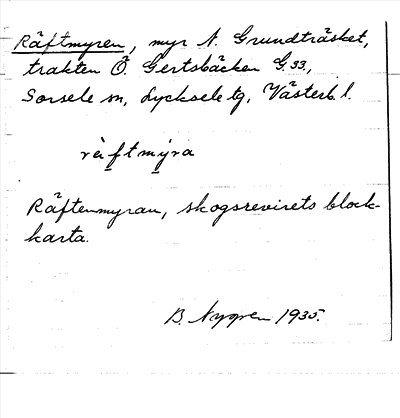 Räftmyren, myr N. Grundträsket,
trakten Ö. Gertsbäcken G 33,
Sorsele sn, Lycksele tg, Västerb. l.
rèftmýra
Räftenmyran, skogsrevirets block-
karta.
B. Nygren 1935.